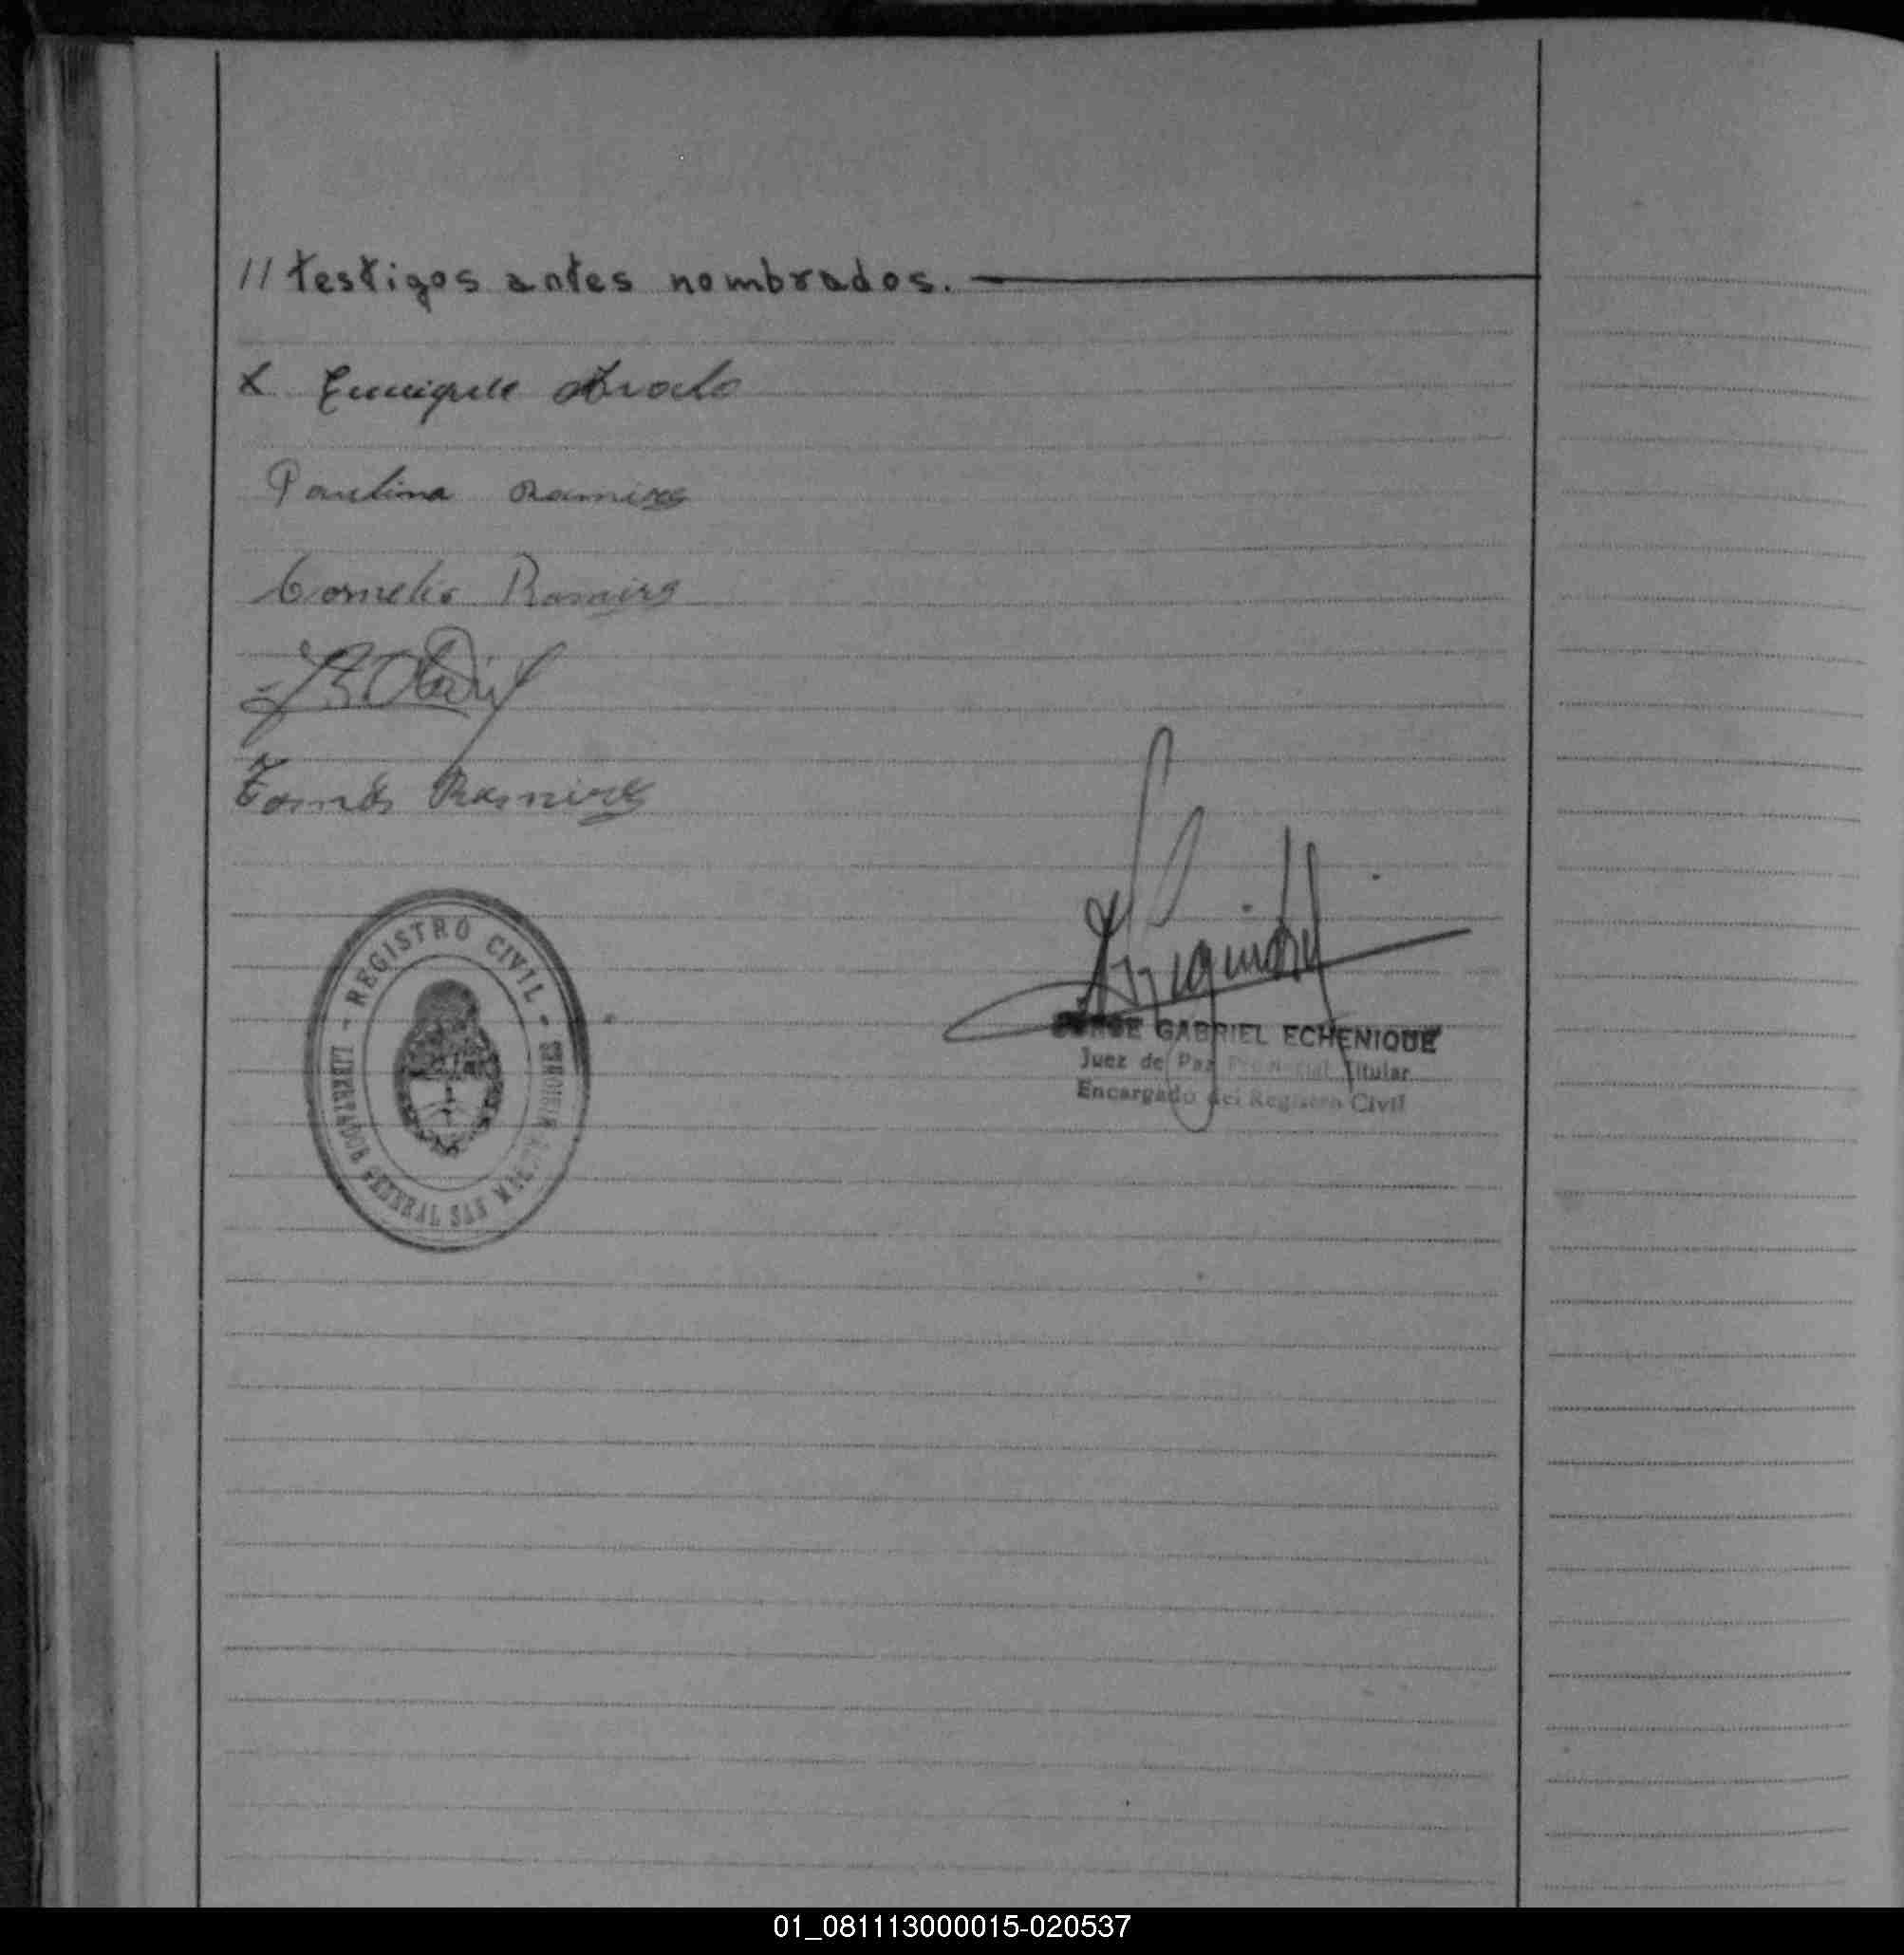 // testigos antes nombrados.
Paulina Ramires
Cornelio Ramires
Tomás Ramires
- REGISTRO CIVIL -
LIBERTADOR GENERAL SAN
GABRIEL ECHENIQUE
Juez de Paz Titular
Encargado del Registro Civil
01_081113000015-020537